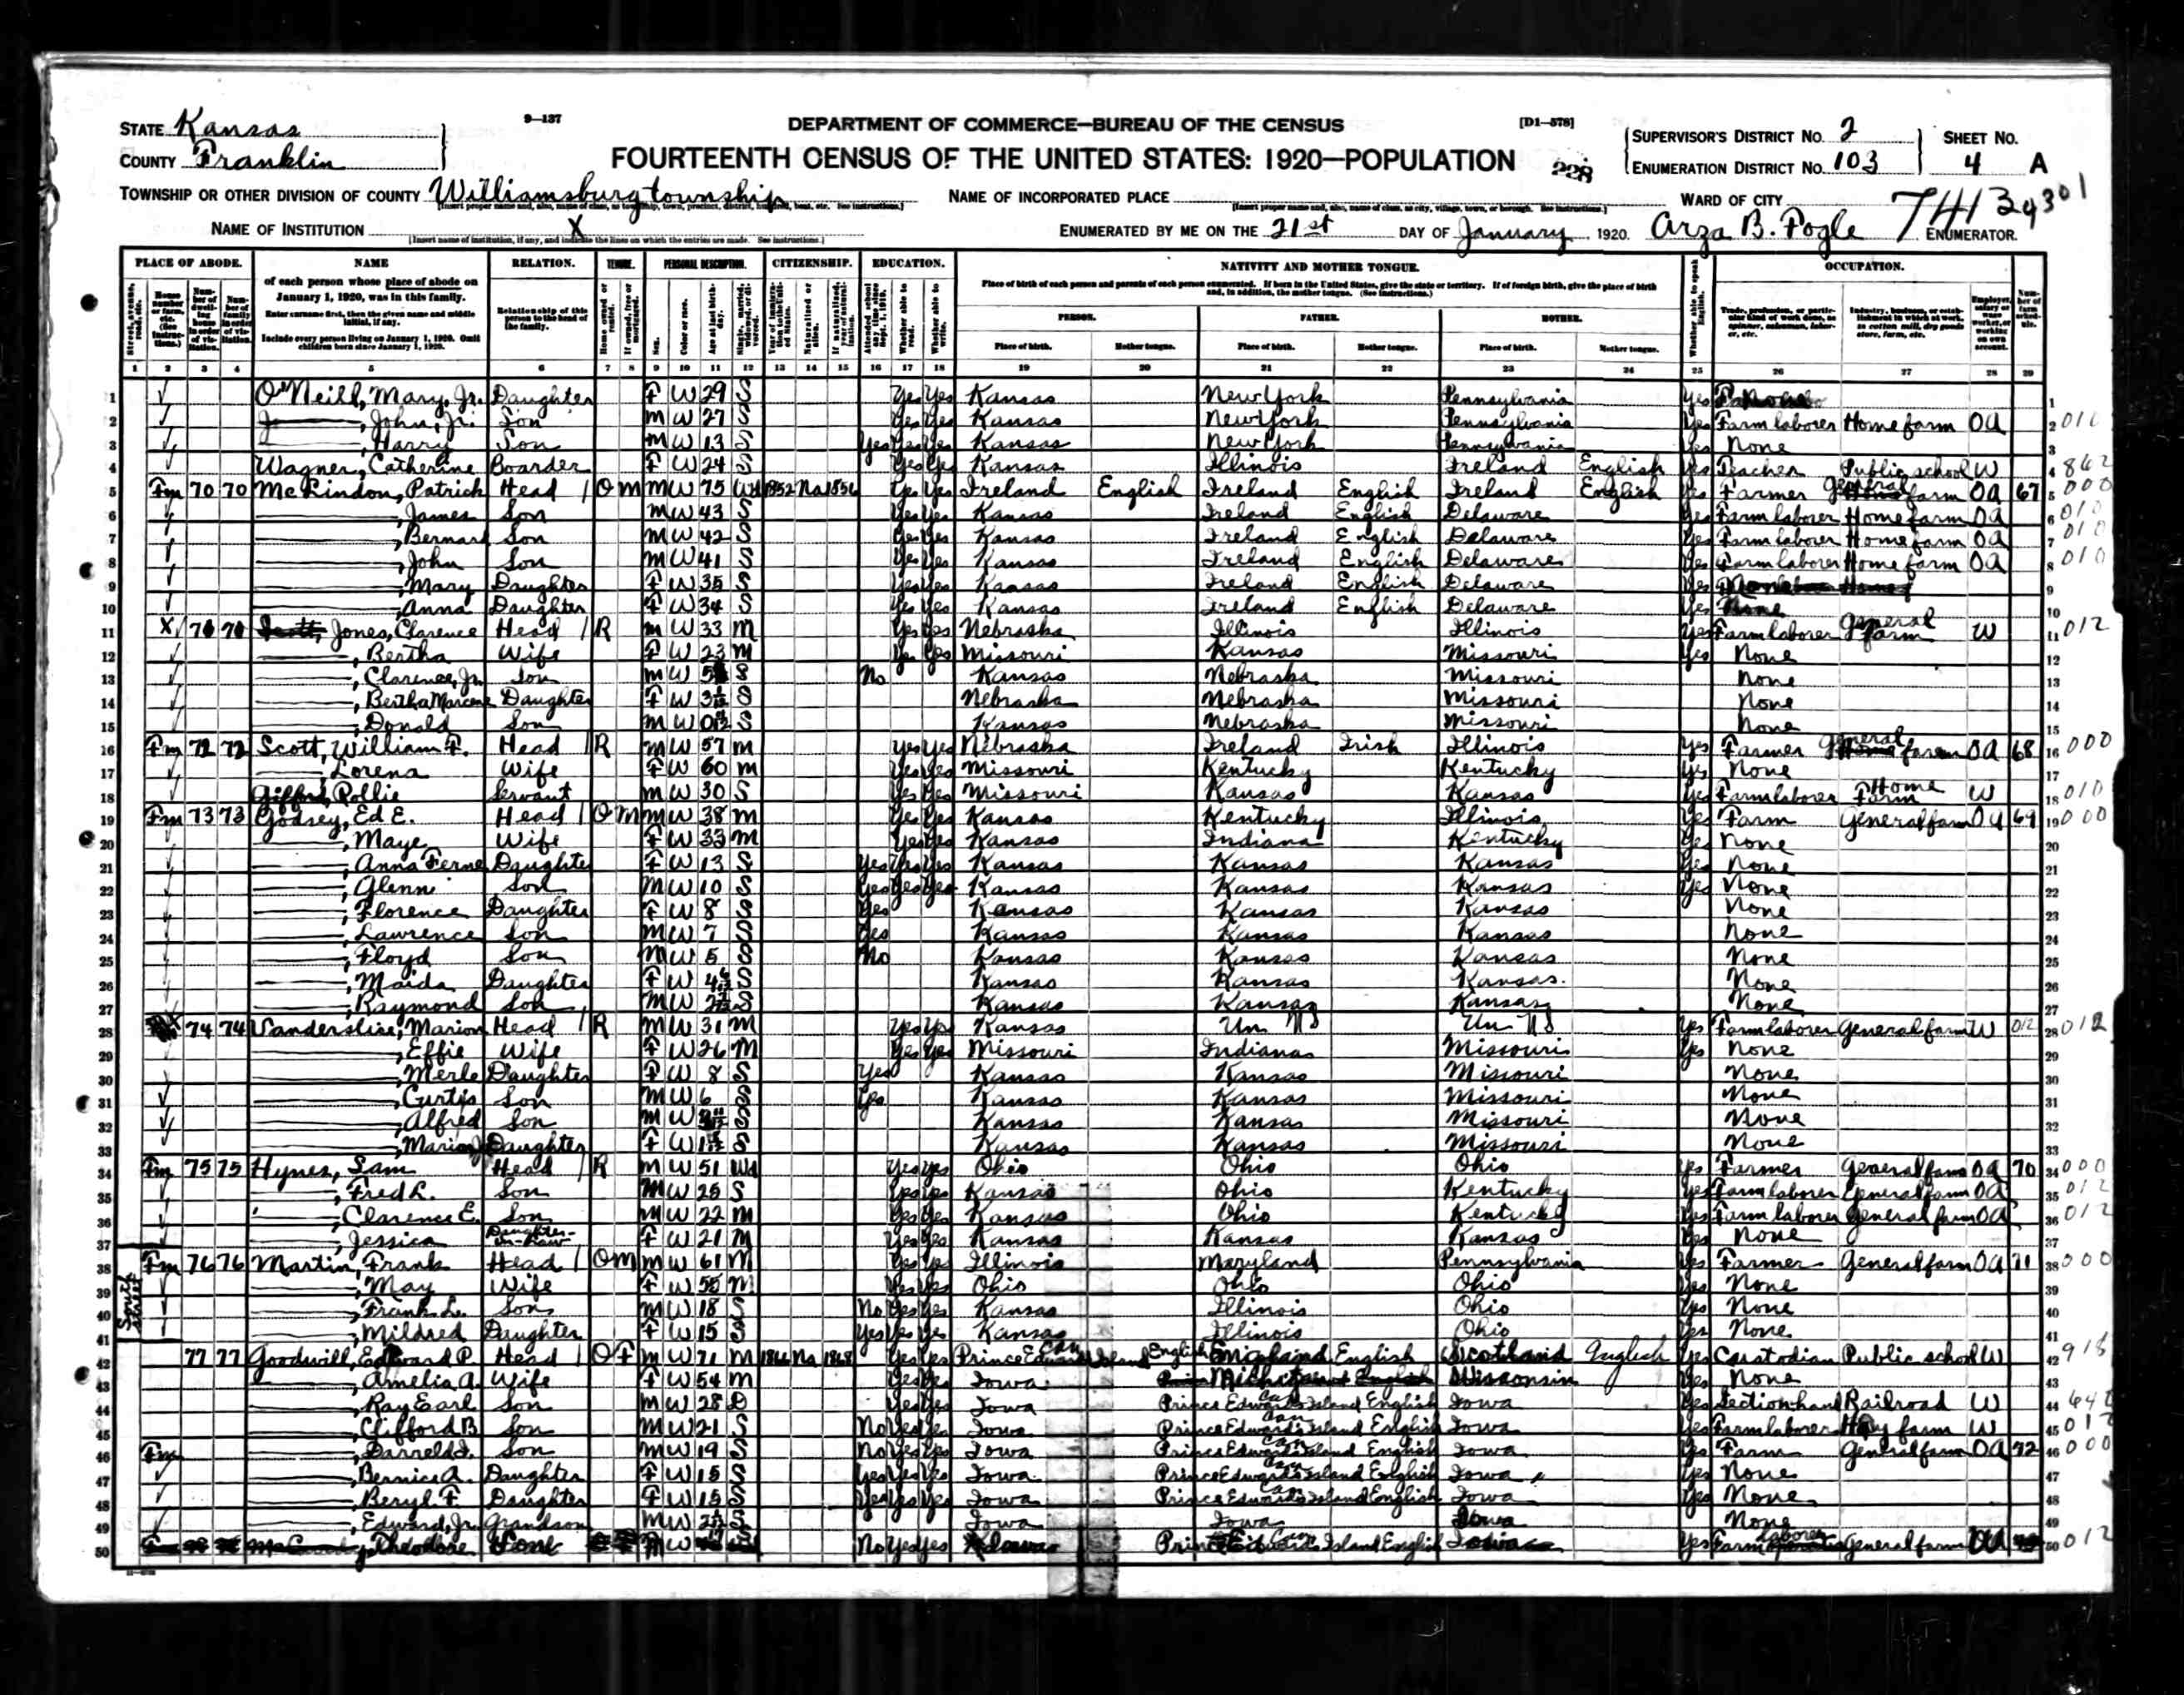 9—137
DEPARTMENT OF COMMERCE—BUREAU OF THE CENSUS
[D1—578]
STATE Kansas
COUNTY Franklin
FOURTEENTH CENSUS OF THE UNITED STATES: 1920—POPULATION
228
SUPERVISOR'S DISTRICT NO. 2
ENUMERATION DISTRICT NO. 103
SHEET NO. 4 A
TOWNSHIP OR OTHER DIVISION OF COUNTY Williamsburg township
NAME OF INCORPORATED PLACE
WARD OF CITY
NAME OF INSTITUTION X
ENUMERATED BY ME ON THE 21st DAY OF January 1920. Arza B. Fogle ENUMERATOR.
PLACE OF ABODE. NAME RELATION. TENURE. PERSONAL DESCRIPTION. CITIZENSHIP. EDUCATION. NATIVITY AND MOTHER TONGUE. OCCUPATION.
of each person whose place of abode on January 1, 1920, was in this family.
Enter surname first, then the given name and middle initial, if any.
Include every person living on January 1, 1920. Omit children born since January 1, 1920.
Relationship of this person to the head of the family.
PERSON. FATHER. MOTHER.
Place of birth. Mother tongue. Place of birth. Mother tongue. Place of birth. Mother tongue.
1 2 3 4 5 6 7 8 9 10 11 12 13 14 15 16 17 18 19 20 21 22 23 24 25 26 27 28 29
1 O'Neill, Mary, Jr. Daughter F W 29 S Yes Yes Kansas New York Pennsylvania Yes 1
2 John, Jr. Son M W 27 S Yes Yes Kansas New York Pennsylvania Yes Farm laborer Home farm OA 2 010
3 Harry Son M W 13 S Yes Yes Yes Kansas New York Pennsylvania Yes None 3
4 Wagner, Catherine Boarder F W 24 S Yes Yes Kansas Illinois Ireland English Yes Teacher Public school W 4 862
5 Fm 70 70 McLindon, Patrick Head 1 O M M W 75 Wd 1852 Na 1856 Yes Yes Ireland English Ireland English Ireland English Yes Farmer General farm OA 67 5 000
6 James Son M W 43 S Yes Yes Kansas Ireland English Delaware Yes Farm laborer Home farm OA 6 010
7 Bernard Son M W 42 S Yes Yes Kansas Ireland English Delaware Yes Farm laborer Home farm OA 7 010
8 John Son M W 41 S Yes Yes Kansas Ireland English Delaware Yes Farm laborer Home farm OA 8 010
9 Mary Daughter F W 35 S Yes Yes Kansas Ireland English Delaware Yes 9
10 Anna Daughter F W 34 S Yes Yes Kansas Ireland English Delaware Yes None 10
11 X 71 71 Jones, Clarence Head 1 R M W 33 M Yes Yes Nebraska Illinois Illinois Yes Farm laborer General Farm W 11 012
12 Bertha Wife F W 23 M Yes Yes Missouri Kansas Missouri Yes None 12
13 Clarence, Jr. Son M W S No Kansas Nebraska Missouri None 13
14 Bertha Marcene Daughter F W S Nebraska Nebraska Missouri None 14
15 Donald Son M W S Kansas Nebraska Missouri None 15
16 Fm 72 72 Scott, William F. Head 1 R M W 57 M Yes Yes Nebraska Ireland Irish Illinois Yes Farmer General farm OA 68 16 000
17 Lorena Wife F W 60 M Yes Yes Missouri Kentucky Kentucky Yes None 17
18 Gifford, Pollie Servant M W 30 S Yes Yes Missouri Kansas Kansas Yes Farm laborer Home Farm W 18 010
19 Fm 73 73 Godsey, Ed E. Head 1 O M M W 38 M Yes Yes Kansas Kentucky Illinois Yes Farm General farm OA 69 19 000
20 Maye Wife F W 33 M Yes Yes Kansas Indiana Kentucky Yes None 20
21 Anna Ferne Daughter F W 13 S Yes Yes Yes Kansas Kansas Kansas Yes None 21
22 Glenn Son M W 10 S Yes Yes Yes Kansas Kansas Kansas Yes None 22
23 Florence Daughter F W 8 S Yes Kansas Kansas Kansas None 23
24 Lawrence Son M W 7 S Yes Kansas Kansas Kansas None 24
25 Floyd Son M W 5 S No Kansas Kansas Kansas None 25
26 Maida Daughter F W S Kansas Kansas Kansas None 26
27 Raymond Son M W S Kansas Kansas Kansas None 27
28 74 74 Vanderslice, Marion Head 1 R M W 31 M Yes Yes Kansas Un Un Yes Farm laborer General farm W 012 28 012
29 Effie Wife F W 26 M Yes Yes Missouri Indiana Missouri Yes None 29
30 Merle Daughter F W 8 S Yes Kansas Kansas Missouri None 30
31 Curtis Son M W 6 S Yes Kansas Kansas Missouri None 31
32 Alfred Son M W S Kansas Kansas Missouri None 32
33 Daughter F W S Kansas Kansas Missouri None 33
34 Fm 75 75 Hynes, Sam Head 1 R M W 51 Wd Yes Yes Ohio Ohio Ohio Yes Farmer General farm OA 70 34 000
35 Fred L. Son M W 25 S Yes Yes Kansas Ohio Kentucky Yes Farm laborer General farm OA 35 012
36 Clarence E. Son M W 22 M Yes Yes Kansas Ohio Kentucky Yes Farm laborer General farm OA 36 012
37 Jessica Daughter-in-Law F W 21 M Yes Yes Kansas Kansas Kansas Yes None 37
South Street
38 Fm 76 76 Martin, Frank Head 1 O M M W 61 M Yes Yes Illinois Maryland Pennsylvania Yes Farmer General farm OA 71 38 000
39 May Wife F W 55 M Yes Yes Ohio Ohio Ohio Yes None 39
40 Frank L. Son M W 18 S No Yes Yes Kansas Illinois Ohio Yes None 40
41 Mildred Daughter F W 15 S Yes Yes Yes Kansas Illinois Ohio Yes None 41
42 77 77 Goodwill, Edward P. Head 1 O F M W 71 M 1866 Na 1868 Yes Yes Prince Edward Island Can English England English Scotland English Yes Custodian Public school W 42 918
43 Amelia A. Wife F W 54 M Yes Yes Iowa Michigan Wisconsin Yes None 43
44 Ray Earl Son M W 28 D Yes Yes Iowa Prince Edwards Island Can English Iowa Yes Section hand Railroad W 44
45 Clifford B Son M W 21 S No Yes Yes Iowa Prince Edwards Island Can English Iowa Yes Farm laborer Hay farm W 45 012
46 Fm Darreld Son M W 19 S No Yes Yes Iowa Prince Edwards Island Can English Iowa Yes Farm General farm OA 72 46 000
47 Bernice A. Daughter F W 15 S Yes Yes Yes Iowa Prince Edwards Island Can English Iowa Yes None 47
48 Beryl F Daughter F W 15 S Yes Yes Yes Iowa Prince Edwards Island Can English Iowa Yes None 48
49 Edward, Jr. Grandson M W S Iowa Iowa Iowa None 49
50 Theodore Son M W No Yes Yes Iowa Prince Edwards Island Can English Iowa Yes Farm laborer General farm 50 012